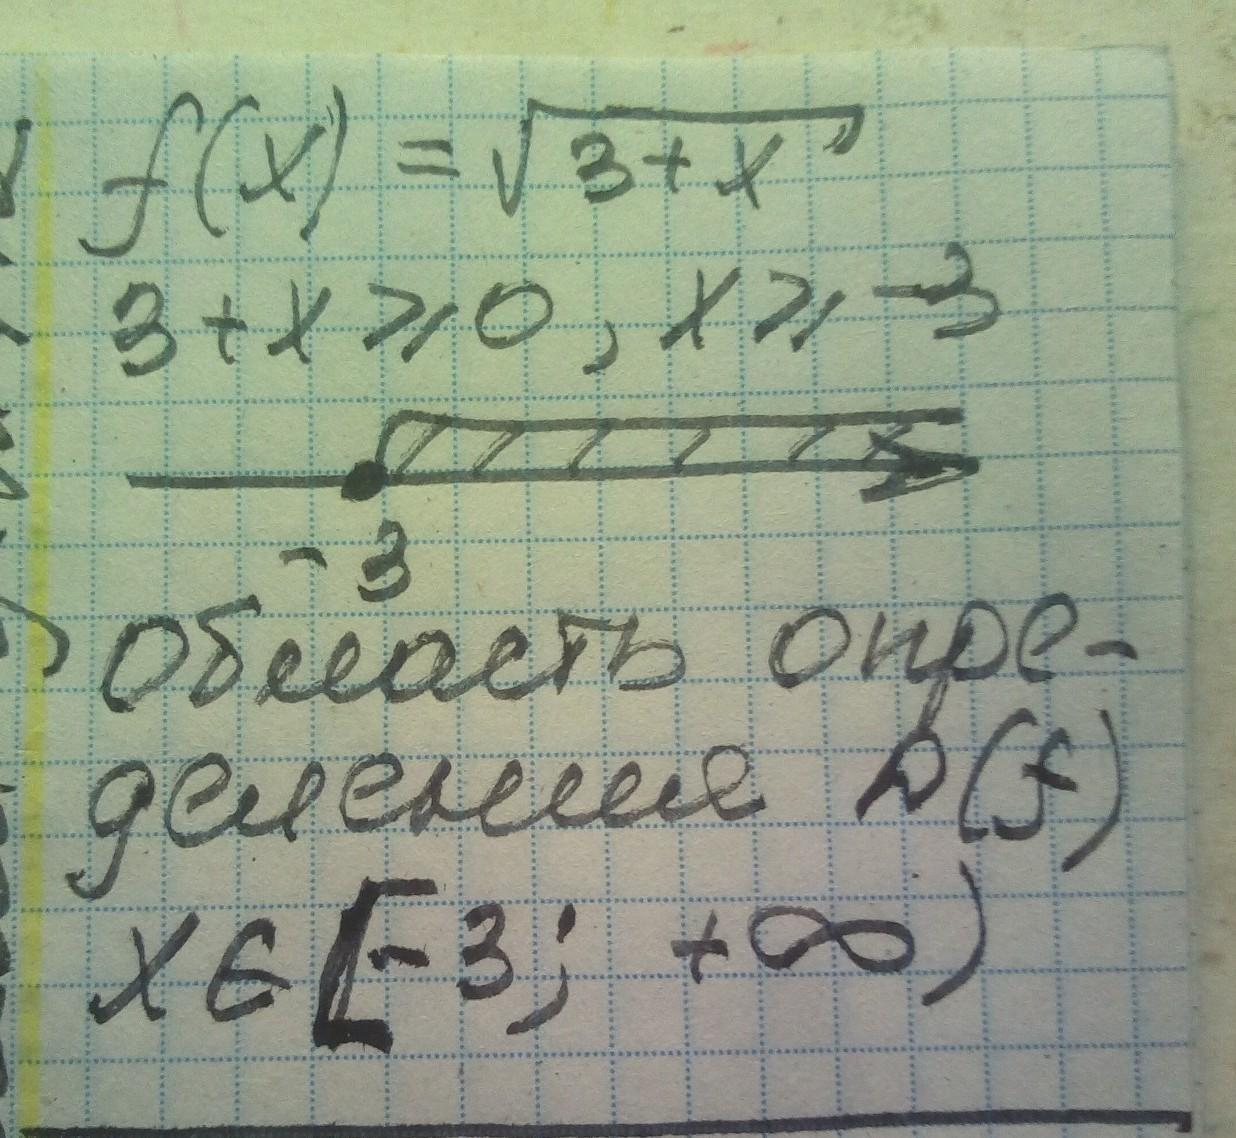 f(x) = √3+x
3+x ⩾ 0, x ⩾ -3
-3
область опре-
деления D(f)
x ∈ [-3; +∞)